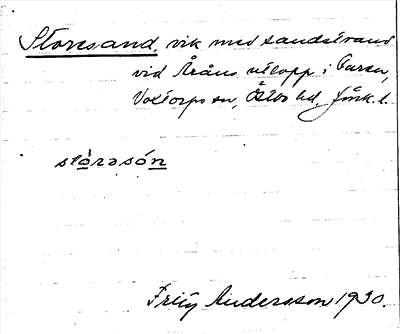 Storesand, vik med sandstrand
vid Åråns utlopp i
Voxtorps sn, Östbo hd, Jönk. l.
stórəsón
Fritz Andersson 1930.